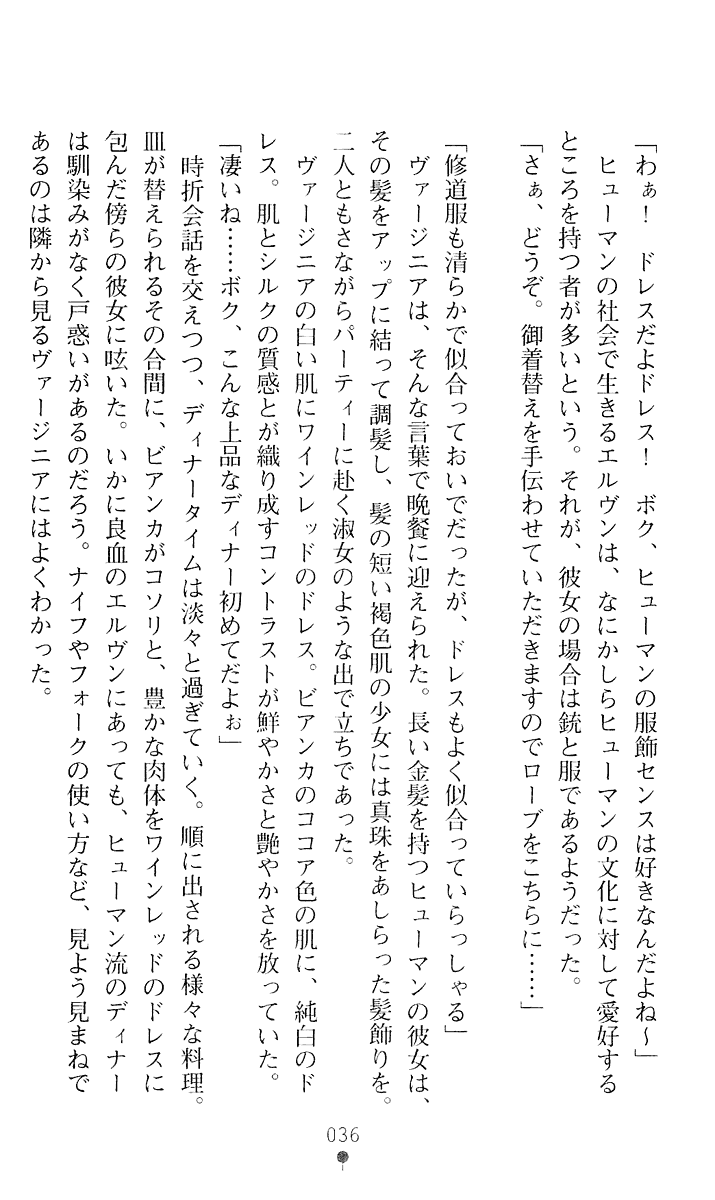 「わぁ！　ドレスだよドレス！　ボク、ヒューマンの服飾センスは好きなんだよね～」
ヒューマンの社会で生きるエルヴンは、なにかしらヒューマンの文化に対して愛好する
ところを持つ者が多いという。それが、彼女の場合は銃と服であるようだった。
「さぁ、どうぞ。御着替えを手伝わせていただきますのでローブをこちらに……」
「修道服も清らかで似合っておいでだったが、ドレスもよく似合っていらっしゃる」
ヴァージニアは、そんな言葉で晩餐に迎えられた。長い金髪を持つヒューマンの彼女は、
その髪をアップに結って調髪し、髪の短い褐色肌の少女には真珠をあしらった髪飾りを。
二人ともさながらパーティーに赴く淑女のような出で立ちであった。
ヴァージニアの白い肌にワインレッドのドレス。ビアンカのココア色の肌に、純白のド
レス。肌とシルクの質感とが織り成すコントラストが鮮やかさと艶やかさを放っていた。
「凄いね……ボク、こんな上品なディナー初めてだよぉ」
時折会話を交えつつ、ディナータイムは淡々と過ぎていく。順に出される様々な料理。
皿が替えられるその合間に、ビアンカがコソリと、豊かな肉体をワインレッドのドレスに
包んだ傍らの彼女に呟いた。いかに良血のエルヴンにあっても、ヒューマン流のディナー
は馴染みがなく戸惑いがあるのだろう。ナイフやフォークの使い方など、見よう見まねで
あるのは隣から見るヴァージニアにはよくわかった。
036